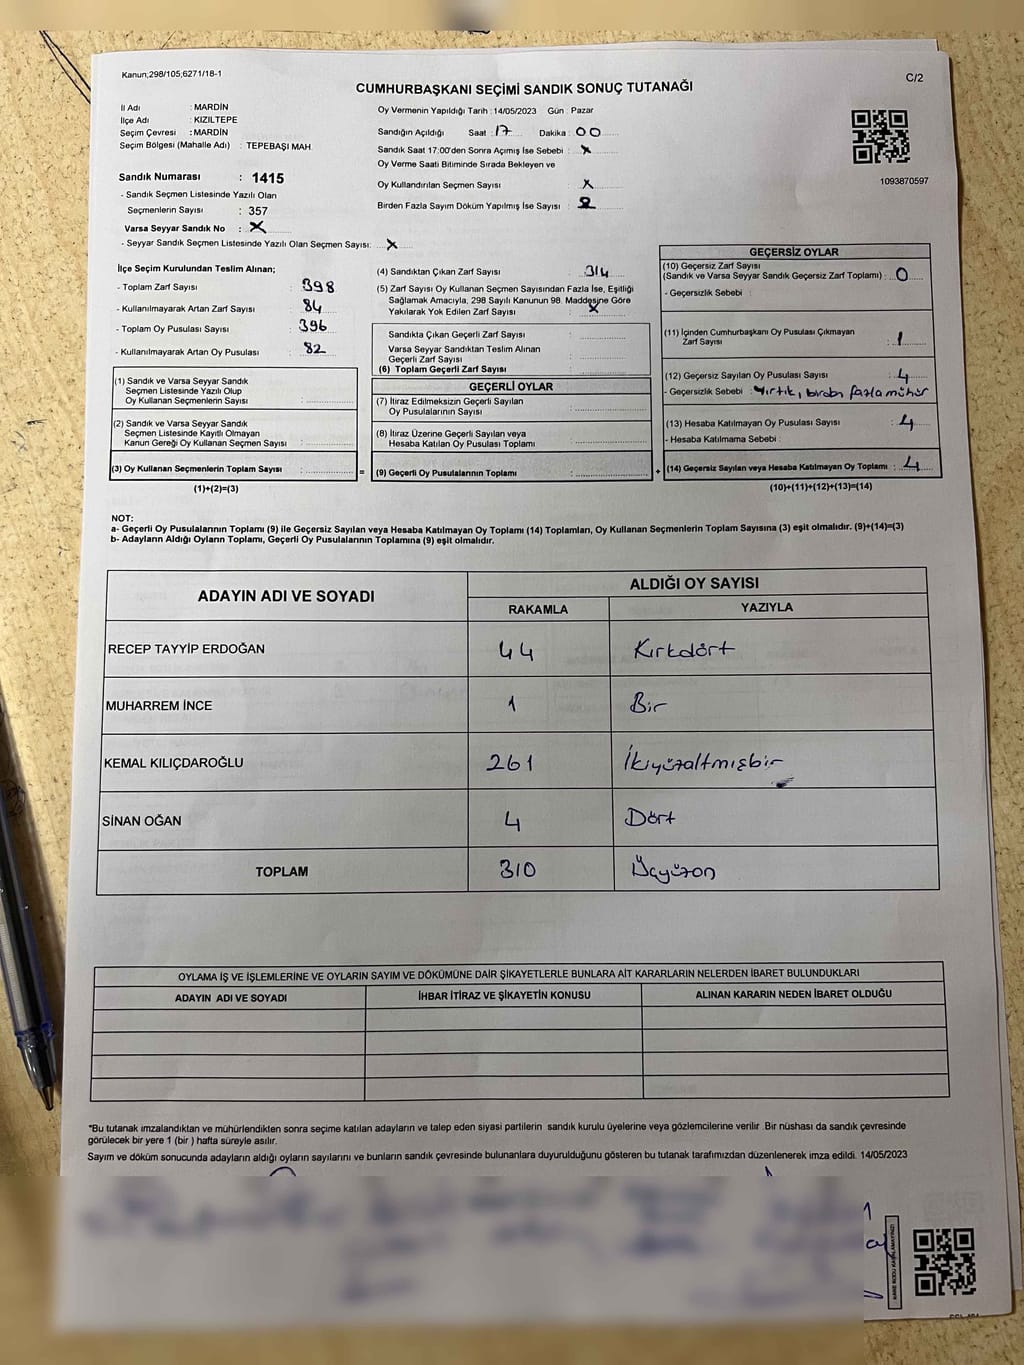 Kanun;298/105;6271/18-1
C/2
CUMHURBAŞKANI SEÇİMİ SANDIK SONUÇ TUTANAĞI
İl Adı : MARDİN
İlçe Adı : KIZILTEPE
Seçim Çevresi : MARDİN
Seçim Bölgesi (Mahalle Adı) : TEPEBAŞI MAH.
Sandık Numarası : 1415
- Sandık Seçmen Listesinde Yazılı Olan
Seçmenlerin Sayısı : 357
Varsa Seyyar Sandık No : X
- Seyyar Sandık Seçmen Listesinde Yazılı Olan Seçmen Sayısı: X
Oy Vermenin Yapıldığı Tarih : 14/05/2023 Gün : Pazar
Sandığın Açıldığı Saat : 17 Dakika : 00
Sandık Saat 17:00'den Sonra Açımış İse Sebebi : X
Oy Verme Saati Bitiminde Sırada Bekleyen ve
Oy Kullandırılan Seçmen Sayısı : X
Birden Fazla Sayım Döküm Yapılmış İse Sayısı :
1093870597
İlçe Seçim Kurulundan Teslim Alınan;
- Toplam Zarf Sayısı : 398
- Kullanılmayarak Artan Zarf Sayısı : 84
- Toplam Oy Pusulası Sayısı : 396
- Kullanılmayarak Artan Oy Pusulası : 82
(1) Sandık ve Varsa Seyyar Sandık
Seçmen Listesinde Yazılı Olup
Oy Kullanan Seçmenlerin Sayısı :
(2) Sandık ve Varsa Seyyar Sandık
Seçmen Listesinde Kayıtlı Olmayan
Kanun Gereği Oy Kullanan Seçmen Sayısı :
(3) Oy Kullanan Seçmenlerin Toplam Sayısı : =
(1)+(2)=(3)
(4) Sandıktan Çıkan Zarf Sayısı : 314
(5) Zarf Sayısı Oy Kullanan Seçmen Sayısından Fazla İse, Eşitliği
Sağlamak Amacıyla, 298 Sayılı Kanunun 98. Maddesine Göre
Yakılarak Yok Edilen Zarf Sayısı : X
Sandıkta Çıkan Geçerli Zarf Sayısı :
Varsa Seyyar Sandıktan Teslim Alınan
Geçerli Zarf Sayısı :
(6) Toplam Geçerli Zarf Sayısı :
GEÇERLİ OYLAR
(7) İtiraz Edilmeksizin Geçerli Sayılan
Oy Pusulalarının Sayısı :
(8) İtiraz Üzerine Geçerli Sayılan veya
Hesaba Katılan Oy Pusulası Toplamı :
(9) Geçerli Oy Pusulalarının Toplamı : +
GEÇERSİZ OYLAR
(10) Geçersiz Zarf Sayısı
(Sandık ve Varsa Seyyar Sandık Geçersiz Zarf Toplamı) : 0
- Geçersizlik Sebebi :
(11) İçinden Cumhurbaşkanı Oy Pusulası Çıkmayan
Zarf Sayısı : 1
(12) Geçersiz Sayılan Oy Pusulası Sayısı : 4
- Geçersizlik Sebebi : Yırtık, birden fazla mühür
(13) Hesaba Katılmayan Oy Pusulası Sayısı : 4
- Hesaba Katılmama Sebebi :
(14) Geçersiz Sayılan veya Hesaba Katılmayan Oy Toplamı : 4
(10)+(11)+(12)+(13)=(14)
NOT:
a- Geçerli Oy Pusulalarının Toplamı (9) ile Geçersiz Sayılan veya Hesaba Katılmayan Oy Toplamı (14) Toplamları, Oy Kullanan Seçmenlerin Toplam Sayısına (3) eşit olmalıdır. (9)+(14)=(3)
b- Adayların Aldığı Oyların Toplamı, Geçerli Oy Pusulalarının Toplamına (9) eşit olmalıdır.
ADAYIN ADI VE SOYADI
ALDIĞI OY SAYISI
RAKAMLA YAZIYLA
RECEP TAYYİP ERDOĞAN 44 Kırkdört
MUHARREM İNCE 1 Bir
KEMAL KILIÇDAROĞLU 261 İkiyüzaltmışbir
SİNAN OĞAN 4 Dört
TOPLAM 310 Üçyüzon
OYLAMA İŞ VE İŞLEMLERİNE VE OYLARIN SAYIM VE DÖKÜMÜNE DAİR ŞİKAYETLERLE BUNLARA AİT KARARLARIN NELERDEN İBARET BULUNDUKLARI
ADAYIN ADI VE SOYADI İHBAR İTİRAZ VE ŞİKAYETİN KONUSU ALINAN KARARIN NEDEN İBARET OLDUĞU
*Bu tutanak imzalandıktan ve mühürlendikten sonra seçime katılan adayların ve talep eden siyasi partilerin sandık kurulu üyelerine veya gözlemcilerine verilir. Bir nüshası da sandık çevresinde
görülecek bir yere 1 (bir ) hafta süreyle asılır.
Sayım ve döküm sonucunda adayların aldığı oyların sayılarını ve bunların sandık çevresinde bulunanlara duyurulduğunu gösteren bu tutanak tarafımızdan düzenlenerek imza edildi. 14/05/2023